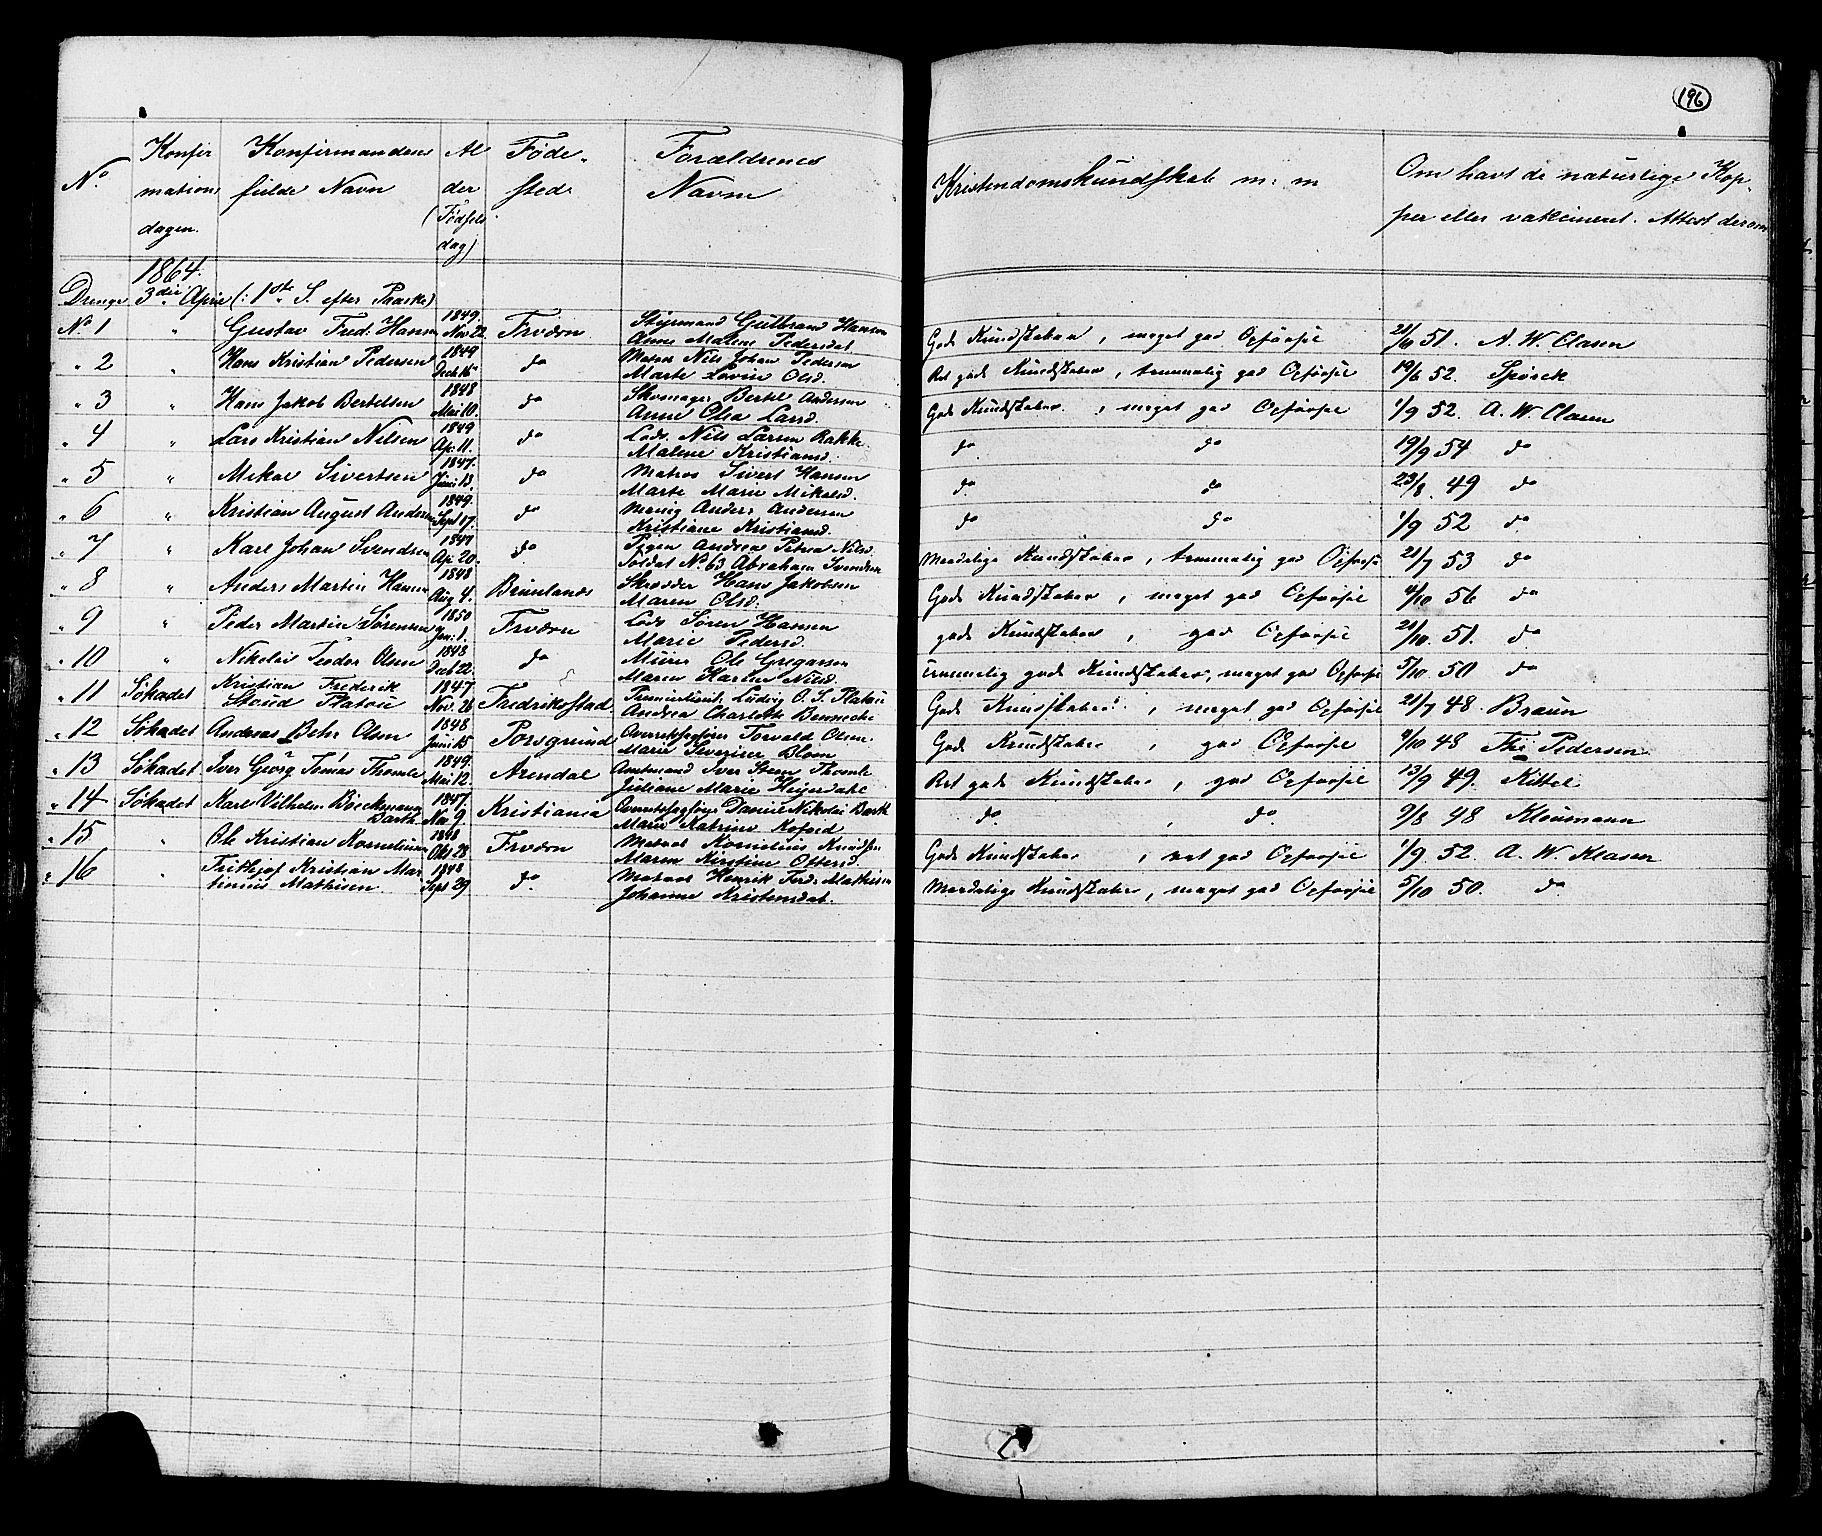 196
No. Konfirmations dagen. Konfirmandens fulde Navn Alder (Fødselsdag) Fødested Forældrenes Navne Kristendomskundskab m: m Om havt de naturlige Kopper eller vakcineret. Attest derom
1864.
Drenge 3die April (: 1ste S. efter Paaske)
No 1 " Gustav Fred: Hansen 1849. Nov 22. Frværn Styrmand Gulbrand Hansen Anne Malene Pedersdat Gode Kundskaber, meget god Opførsel 21/10 51. A. W. Clasen
" 2 " Hans Kristian Pedersen 1849 Decb 15 do Matros Nils Johan Pedersen Marte Lovise Olsd. Ret gode Kundskaber, temmelig god Opførsel 19/6 52. Spørck
" 3 " Hans Jakob Bertelsen 1848 Mai 10. do Skomager Bertel Andersen Anne Olea Larsd. Gode Kundskaber, meget god Opførsel 1/9 52. A. W. Clasen
" 4 " Lars Kristian Nilsen 1849 Ap: 11. do Lods. Nils Larsen Rakke. Malene Kristiansd. do do 19/9 54 do
" 5 " Mikal Sivertsen 1847. Juni 13. do Matros Sivert Hansen Marte Marie Mikelsd. do do 23/8. 49 do
" 6 " Kristian August Andersen 1849. Sept 17. do Menig Anders Andersen Kristiane Kristiansd. do do 1/9 52 do
" 7 " Karl Johan Svendsen 1849 Ap: 20. do Pigen Andrea Petrea Nilsd. Soldat No 63 Abraham Svendsen Maadelige Kundskaber, temmelig god Opførsel 21/7 53 do
" 8 " Anders Martin Hansen 1848 Aug 4. Brunlands Skrædder Hans Jakobsen Maren Olsd. Gode Kundskaber, meget god Opførsel 4/10 56 do
" 9 " Peder Martin Sørensen 1850 Jan: 1. Frværn Lods Søren Hansen Marie Pedersd. gode Kundskaber, god Opførsel 21/10 51. do
" 10 " Nikolai Teodor Olsen 1848 Decb 22. do Murer Ole Gregarsen Maren Karine Nilsd. temmelig gode Kundskaber, meget god Opførsel 5/10 50 do
" 11 Søkadet Kristian Frederik Stoud Platou 1847 Nov. 26 Fredrikstad Premierløitnt: Ludvig O. S. Platou Andrea Charlotte Bennecke Gode Kundskaber, meget god Opførsel 21/7 48 Braun
" 12 Søkadet Andreas Behr Olsen 1848 Juni 15 Porsgrund Overretssagfører Torvald Olsen. Marie Severine Blom Gode Kundskaber, god Opførsel 4/10 48 Thr Pedersen
" 13 Søkadet Iver Georg Tomas Thomle 1849. Mai 12. Arendal Amtmand Iver Steen Thomle Juliane Marie Heyerdahl Ret gode Kundskaber, god Opførsel 13/9 49. Kittel
" 14 Søkadet Karl Vilhelm Böeckmann Barth 1847. Nov 9. Kristiania Overretssagfører Daniel Nikolai Barth Marie Katrine Kofoed do. , do. 9/8 48 Kloumann
" 15 " Ole Kristian Kornelius 1848 Okt 28 Frværn Matros Kornelius Knudsen Maren Kirstine Ottersd. Gode Kundskaber, ret god Opførsel 1/9 52. A. W. Klasen
" 16 " Frithjof Kristian Martinius Mathisen 1848 Sept 29 do. Matros Henrik Ferd: Mathisen Johanne Kristensdat. Maadelige Kundskaber, meget god Opførsel 5/10 50. do